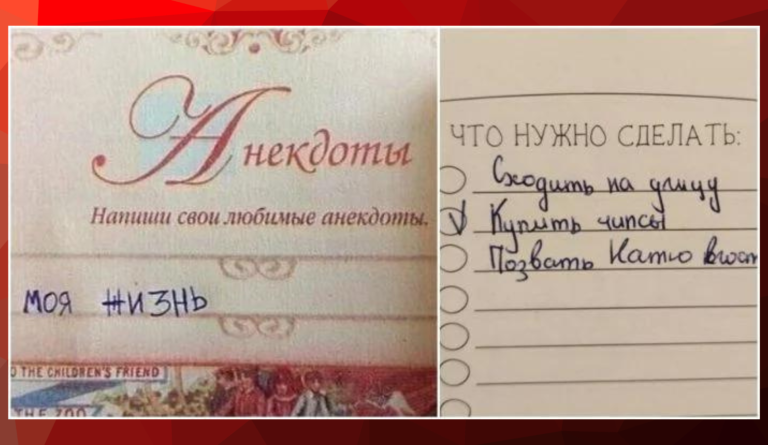 Анекдоты
Напиши свои любимые анекдоты.
МОЯ ЖИЗНЬ
THE CHILDREN'S FRIEND
THE ZOO
ЧТО НУЖНО СДЕЛАТЬ:
Сходить на улицу
Купить чипсы
Позвать Катю вгост